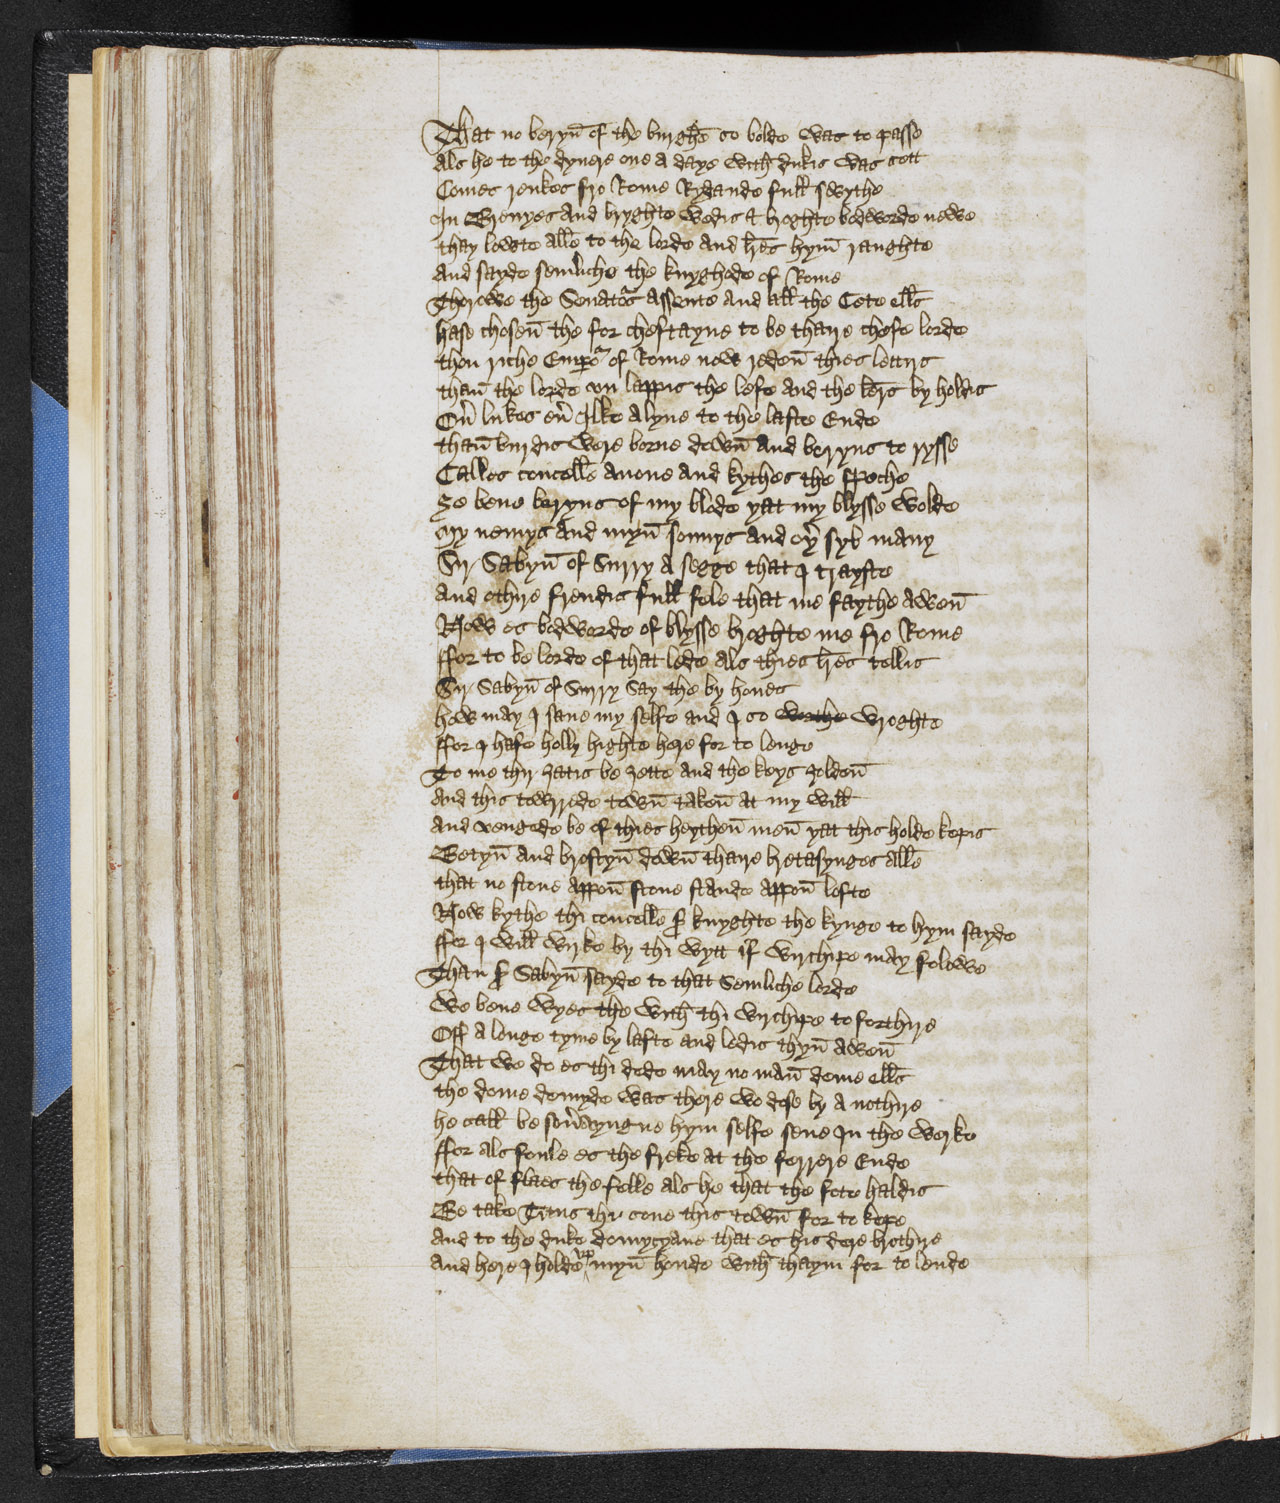 That no beryn̄ of the burghe so bolde was to passe
Als he to the dynere one a daye with dukis was sett
Comes renkes fro Rome Rydande full swythe
In Brenyes and bryghte wedis & broghte bodworde newe
thay lowtte alle to the lorde and lr̄es hym̄ raughte
And sayde semliche the knyghede of Rome
Thorowe the Senatours Assente and all the Cete ells
hase chosen̄ the for cheftayne to be thaire chefe lorde
thou riche Emp̱or of Rome now reden̄ thies lettirs
than̄ the lorde vn lappis the lefe and the lett̄rs by holdis
Ou̾ lukes eu̾ Ilke A lyne to the laste Ende
than̄ burdis were borne down̄ and beryns to rysse
Calles concelle anone and kythes the speche
Ȝe bene beryns of my blode yat my blysse wolde
My nemys and myn̄ sonnys and oy̾ syb many
Sir Sabyn̄ of Surry A segge that I trayste
And othire frendis full fele that me faythe awen̄
Now es bodworde of blysse broghte me fro Rome
ffor to be lorde of that lede als thies lr̄es tellis
Sir Sabyn̄ of Surry Say the by houes
how may I saue my selfe and I so worthe wroghte
ffor I hafe holly highte here for to lenge
To me thir ȝatis be ȝette and the keys ȝolden̄
And this towrrede town̄ taken̄ at my will
And vengede be of thies heythen̄ men̄ yat this holde kepis
Betyn̄ and brostyn̄ down̄ thaire bretasynges alle
that no stone appon̄ stone stande appon̄ lofte
Now kythe thi concelle sr knyghte the kynge to hym sayde
ffor I will wirke by thi wytt if wirchipe may folowe
Than sr Sabyn̄ sayde to that Semliche lorde
We bene wyes the with thi wirchipe to forthire
Off A longe tyme by lafte and ledis thyn̄ awen̄
That we do es thi dede may no man̄ deme ells
the dome demyde was there wo dose by A nothire
he sall be sou̾ayngne hym selfe sene In the werke
ffor als fonle es the freke at the ferrere Ende
that of flaes the felle als he that the fote haldis
Be take Titus thi sone this town̄ for to kepe
And to the duke domycyane that es his dere brothire
And here I holde vp myn̄ honde with thaym for to lende